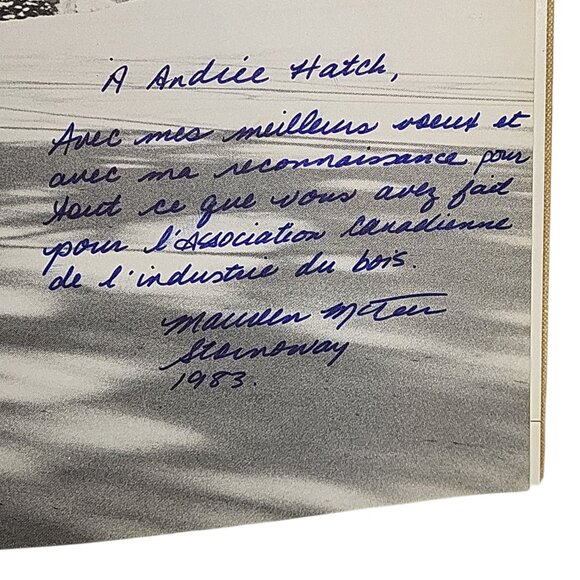 À Andrée Hatch,
Avec mes meilleurs voeux et
avec ma reconnaissance pour
tout ce que vous avez fait
pour l'Association Canadienne
de l'industrie du bois.
Maureen McTeer
Stornoway
1983.